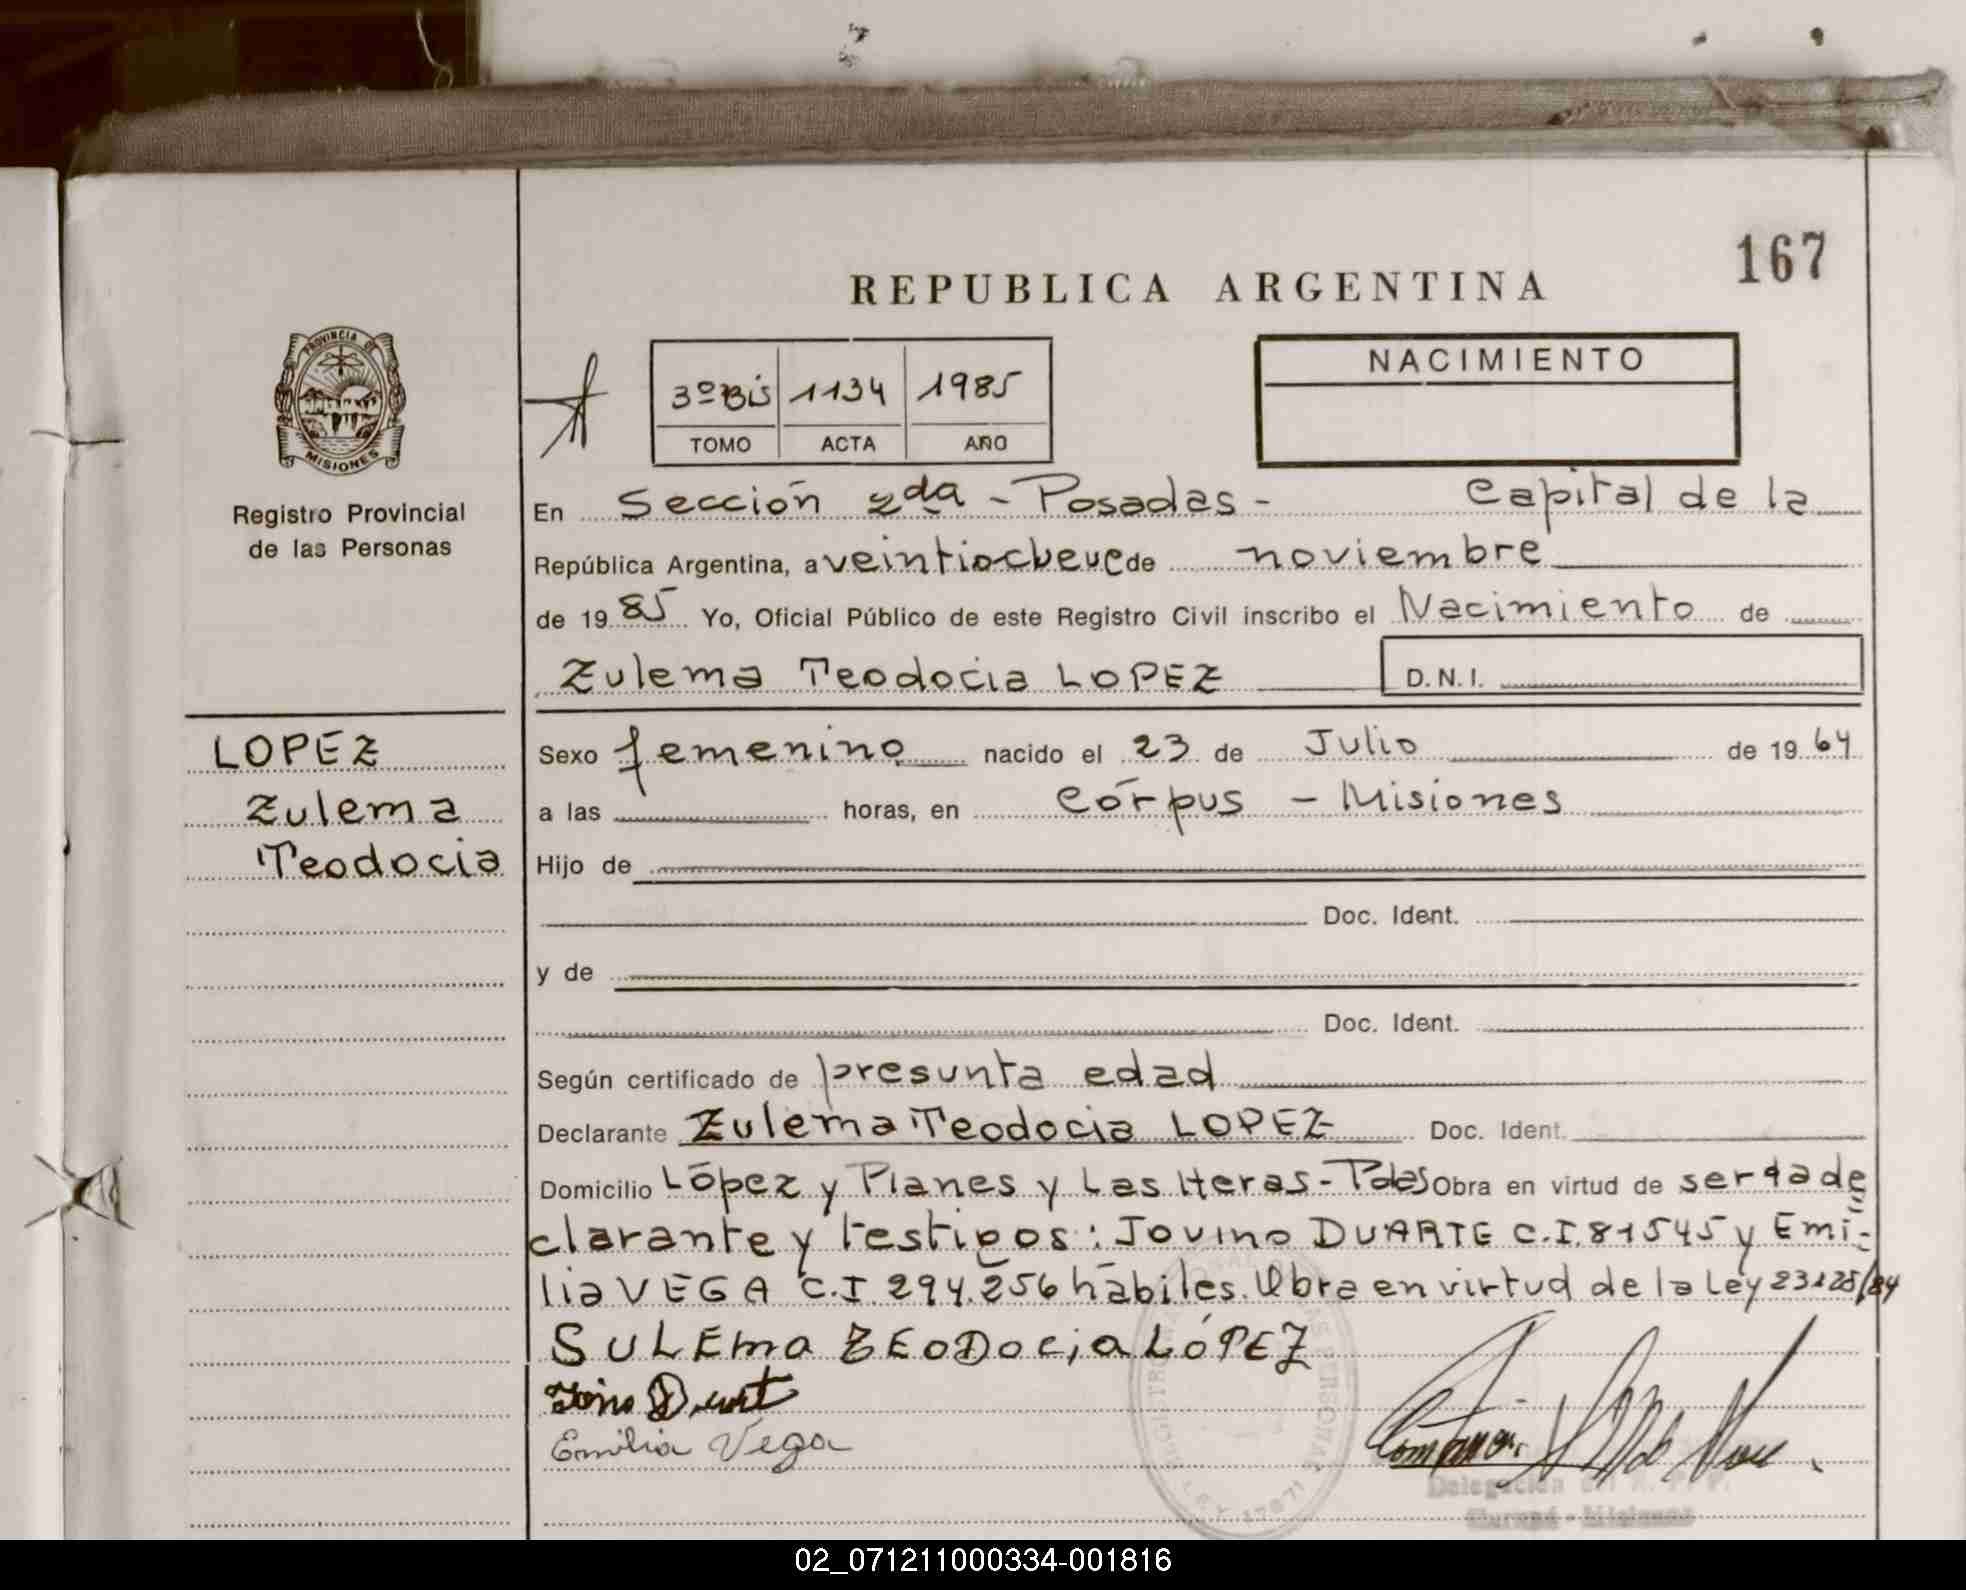 167
REPUBLICA ARGENTINA
PROVINCIA DE
MISIONES
Registro Provincial
de las Personas
3º Bis 1134 1985
TOMO ACTA AÑO
NACIMIENTO
En Sección 2da - Posadas - Capital de la
República Argentina, a veintinueve de noviembre
de 1985 Yo, Oficial Público de este Registro Civil inscribo el Nacimiento de
Zulema Teodocia LOPEZ D.N.I.
LOPEZ
Zulema
Teodocia
Sexo femenino nacido el 23 de Julio de 1964
a las horas, en Córpus - Misiones
Hijo de
Doc. Ident.
y de
Doc. Ident.
Según certificado de presunta edad
Declarante Zulema Teodocia LOPEZ Doc. Ident.
Domicilio López y Planes y Las Heras - Pdas Obra en virtud de ser la de
clarante y testigos: Jovino DUARTE C.I. 81545 y Emi-
lia VEGA C.I. 294.256 hábiles. Obra en virtud de la Ley 23128/84
SULEma ZEODOciaLóPEZ
Emilia Vega
02_071211000334-001816